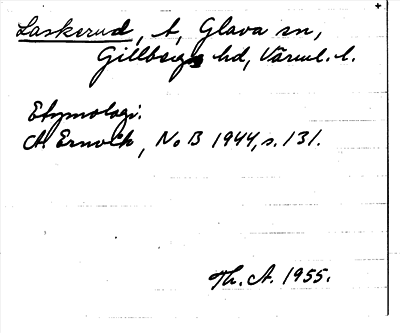 Laskerud, t, Glava sn,
Gillbergs hd, Värml. l.
Etymologi.
A. Ernolk, NoB 1944, s. 131.
Th. A. 1955.